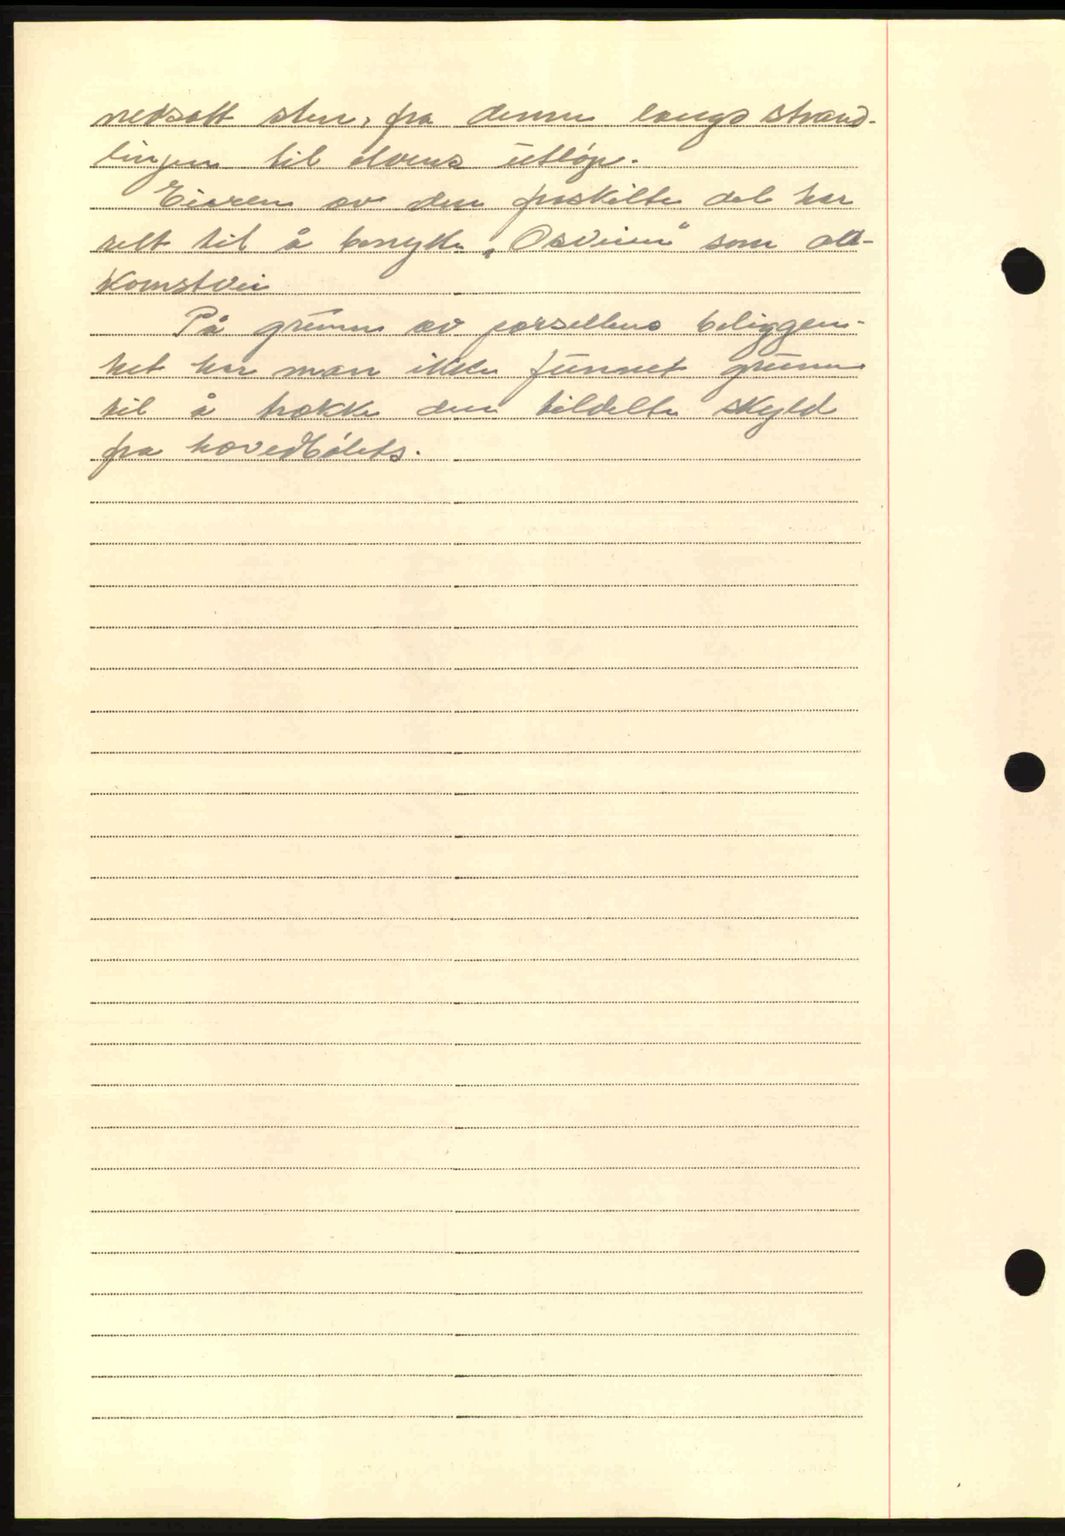 nedsatt sten, fra denne langs strand-
linjen til elvens utløp.
Eieren av den fraskilte del har
rett til å benytte „Osveien" som at-
komstvei
På grunn av parsellens beliggen-
het har man ikke funnet grunn
til å trekke den tildelte skyld
fra hovedbølets.